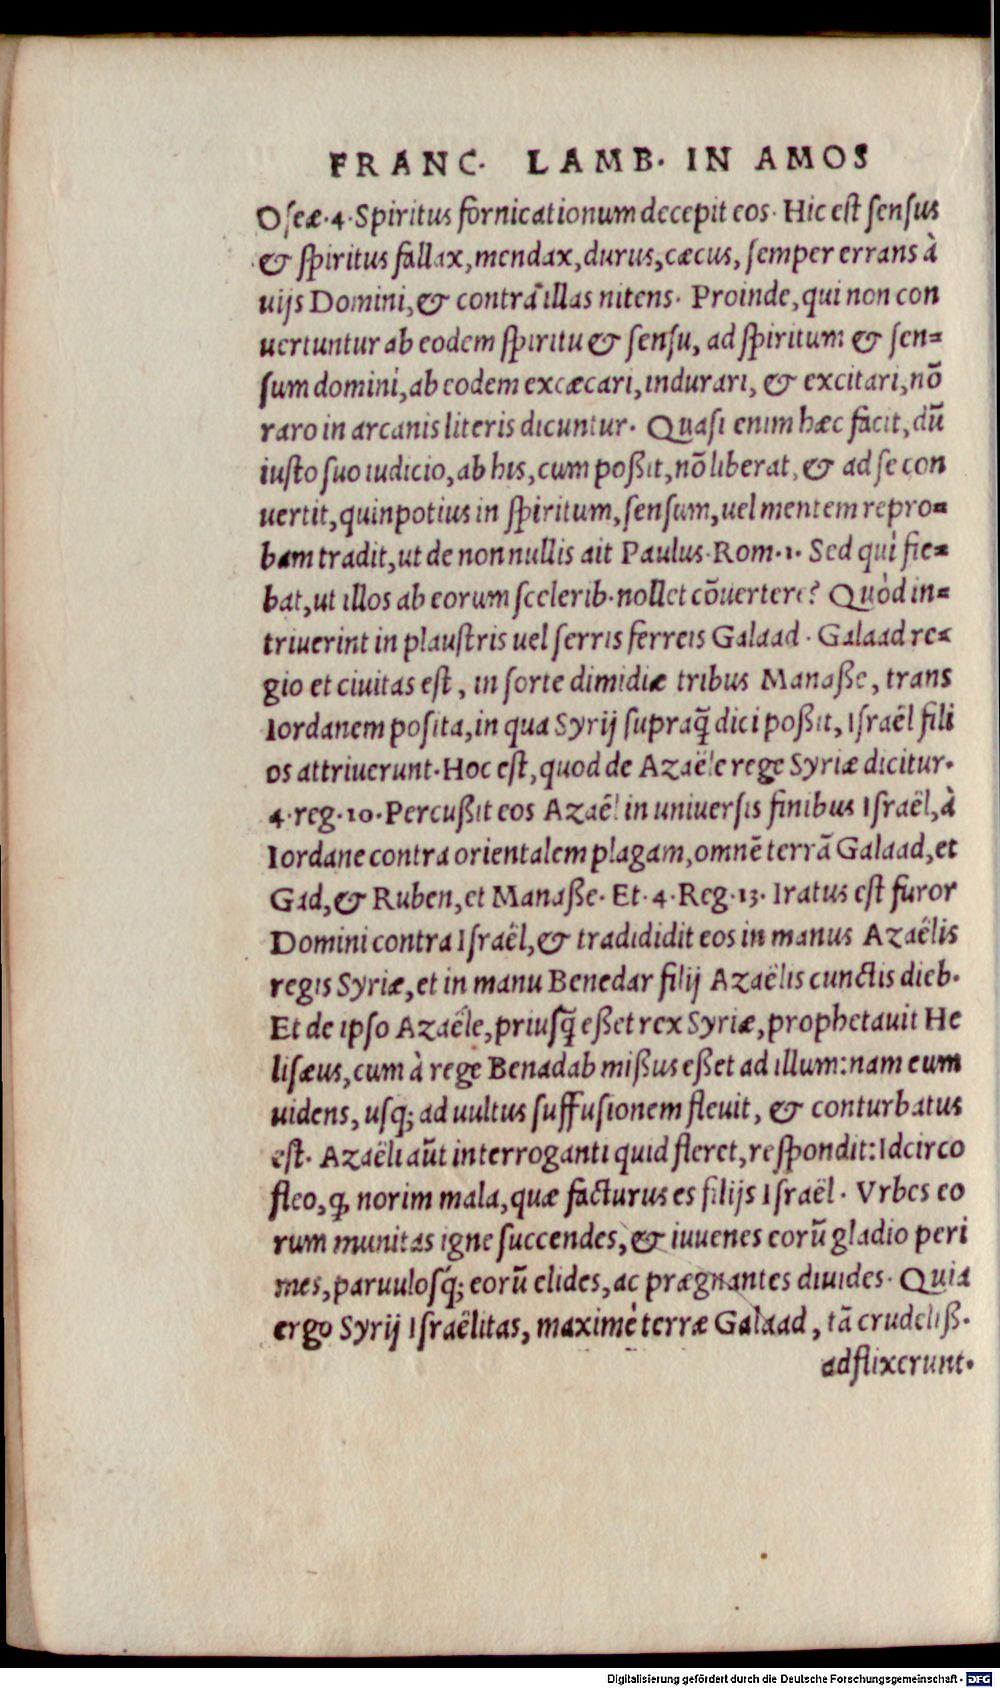 FRANC. LAMB. IN AMOS
Oſeæ.4.Spiritus fornicationum decepit eos. Hic eſt ſenſus
& ſpiritus fallax, mendax, durus, cæcus, ſemper errans à
uijs Domini, & contra illas nitens. Proinde, qui non con
uertuntur ab eodem ſpiritu & ſenſu, ad ſpiritum & ſen=
ſum domini, ab eodem excæcari, indurari, & excitari, nō
raro in arcanis literis dicuntur. Quaſi enim hæc facit, dū
iuſto ſuo iudicio, ab his, cum poßit, nō liberat, & ad ſe con
uertit, quinpotius in ſpiritum, ſenſum, uel mentem repro=
bam tradit, ut de nonnullis ait Paulus. Rom.1. Sed quì fie=
bat, ut illos ab eorum ſcelerib. nollet cōuertere? Quòd in=
triuerint in plauſtris uel ſerris ferreis Galaad. Galaad re=
gio et ciuitas eſt, in ſorte dimidiæ tribus Manaße, trans
Iordanem poſita, in qua Syrij ſupraq̃ dici poßit, Iſraël fili
os attriuerunt. Hoc eſt, quod de Azaële rege Syriæ dicitur.
4.reg.10. Percußit eos Azaël in uniuerſis finibus Iſraël, à
Iordane contra orientalem plagam, omnē terrā Galaad, et
Gad, & Ruben, et Manaße. Et.4.Reg.13. Iratus eſt furor
Domini contra Iſraël, & tradididit eos in manus Azaëlis
regis Syriæ, et in manu Benedar filij Azaëlis cunctis dieb.
Et de ipſo Azaële, priuſq̃ eßet rex Syriæ, prophetauit He
liſæus, cum à rege Benadab mißus eßet ad illum: nam eum
uidens, uſq; ad uultus ſuffuſionem fleuit, & conturbatus
eſt. Azaëli aūt interroganti quid fleret, reſpondit: Idcirco
fleo, ꝙ norim mala, quæ facturus es filijs Iſraël. Vrbes eo
rum munitas igne ſuccendes, & iuuenes eorū gladio peri
mes, paruuloſq́; eorū elides, ac prægnantes diuides. Quia
ergo Syrij Iſraëlitas, maximè terræ Galaad, tā crudeliß.
adflixerunt.
Digitalisierung gefördert durch die Deutsche Forschungsgemeinschaft - DFG